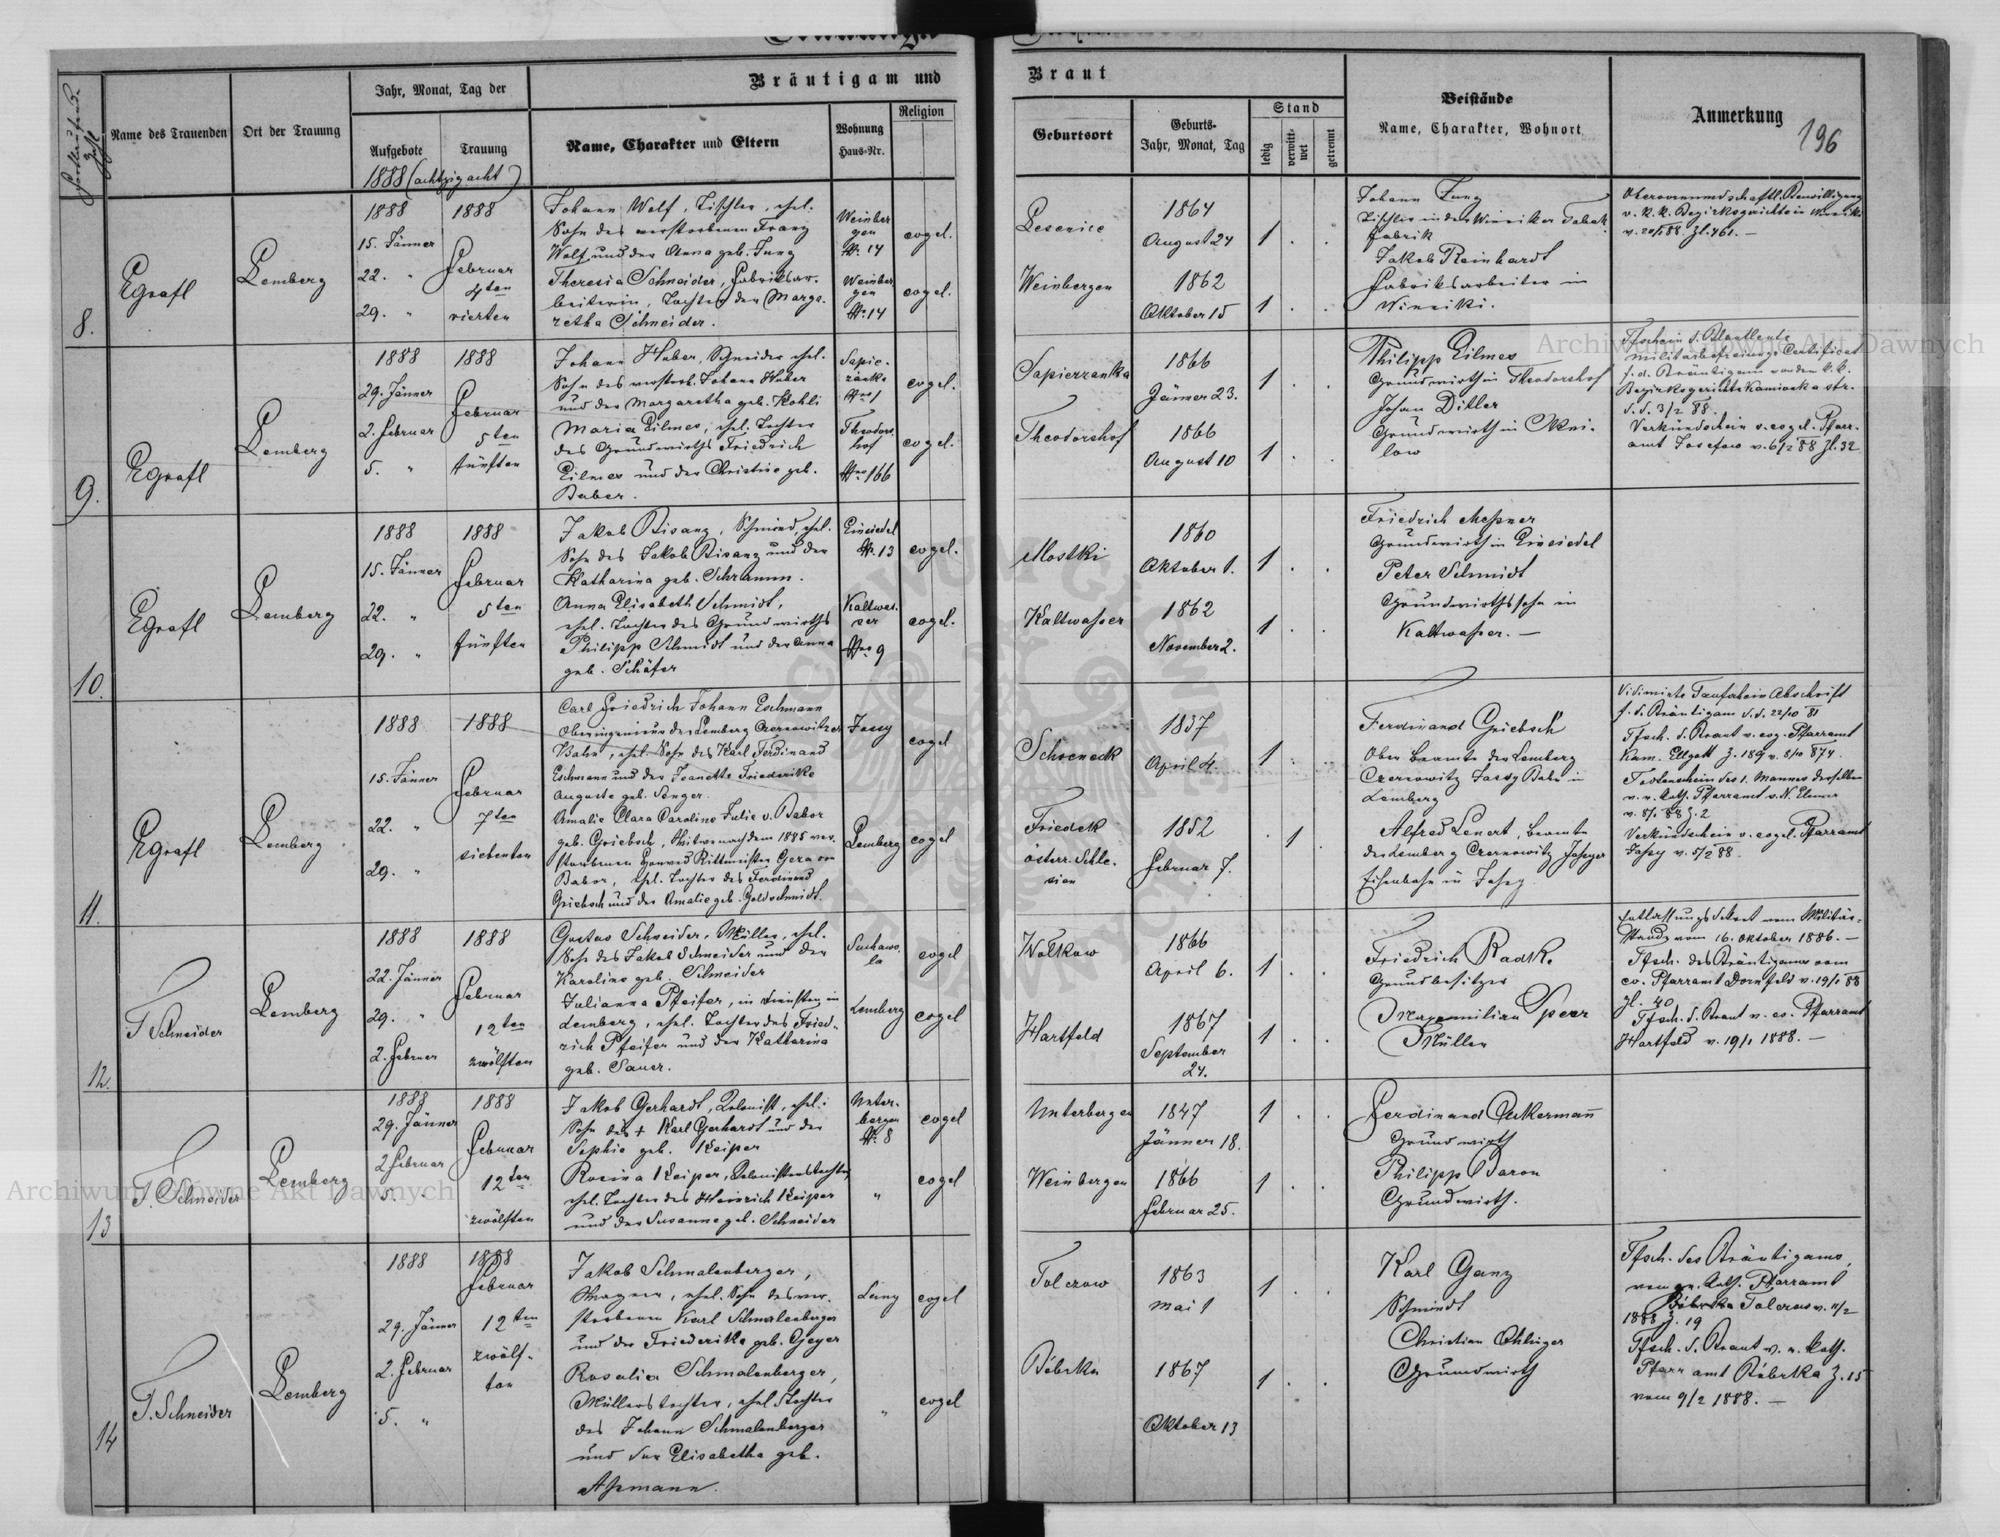 Bräutigam und
Braut
Fortlaufende Zahl
Name des Trauenden
Ort der Trauung
Jahr, Monat, Tag der
Aufgebote
Trauung
Name, Charakter und Eltern
Wohnung
Haus-Nr.
Religion
Geburtsort
Geburts-
Jahr, Monat, Tag
Stand
ledig
verwitt-
wet
getrennt
Beistände
Name, Charakter, Wohnort
Anmerkung
196
1888 (achtzig acht)
8.
Egrafl
Lemberg
1888
15. Jänner
22. "
29. "
1888
Februar
4ten
vierten
Johann Wolf, Tischler, ehel.
Sohn des verstorbenen Franz
Wolf und der Anna geb. Jung
Theresia Schneider, Fabriksar-
beiterin, Tochter der Marga-
retha Schneider.
Weinber
gen
Nr. 14
Weinber
gen
Nr. 14
evgel.
evgel.
Lesenice
Weinbergen
1864
August 24
1862
Oktober 15
1 . .
1 . .
Johann Jung
Tischler in der Winniker Tabak
fabrik
Jakob Reinhardt
Fabriksarbeiter in
Winniki.
Obervormundschaftl. Bewilligung
v. k. k. Bezirksgericht in Winniki
v. 20/1 88 Zl. 461. —
9.
Egrafl
Lemberg
1888
29. Jänner
2. Februar
5. "
1888
Februar
5ten
fünften
Johann Huber, Schneider ehel.
Sohn des verstorb. Johann Huber
und der Margaretha geb. Kohli
Maria Eilmes, ehel. Tochter
des Grundwirths Friedrich
Eilmes und der Christine geb.
Daber.
Sapie-
zanka
Nro 1
Theodors-
hof
Nro 166
evgel.
evgel.
Sapiezanka
Theodorshof
1866
Jänner 23.
1866
August 10
1 . .
1 . .
Philipp Eilmes
Grundwirth in Theodorshof
Johan Diller
Grundwirth in
low
Militärbefreiungs Certificat
f. d. Bräutigam von der k. k.
Bezirksgerichte Kamionka str.
d. d. 3/2 88.
Verkündschein v. evgel. Pfarr-
amt Josefow v. 6/2 88 Zl. 32
10.
Egrafl
Lemberg
1888
15. Jänner
22. "
29. "
1888
Februar
5ten
fünften
Jakob Bisanz, Schmied, ehel.
Sohn des Jakob Bisanz und der
Katharina geb. Schramm.
Anna Elisabeth Schmidt,
ehel. Tochter des Grundwirths
Philipp Schmidt und der Anna
geb. Schäfer
Einsiedel
Nr. 13
Kaltwas-
ser
Nro 9
evgel.
evgel.
Mostki
Kaltwaßer
1860
Oktober 1.
1862
November 2.
1 . .
1 . .
Friedrich Meßner
Grundwirth in Einsiedel
Peter Schmidt
Grundwirthssohn in
Kaltwaßer. —
11.
Egrafl
Lemberg
1888
15. Jänner
22. "
29. "
1888
Februar
7ten
siebenten
Carl Friedrich Johann Eschmann
Oberingenieur der Lemberg Czernowitzer
Bahn, ehel. Sohn des Karl Ferdinand
Eschmann und der Jeanette Friederike
Auguste geb. Senger.
Amalie Clara Caroline Julie v. Babor
geb. Griebsch, Witwe nach dem 1885 ver-
storbenen Honved Rittmeister Geza von
Babor, ehel. Tochter des Ferdinand
Griebsch und der Amalie geb. Goldschmidt.
Jassy
Lemberg
evgel
evgel
Schoeneck
Friedek
österr. Schle-
sien
1837
April 4.
1852
Februar 7.
1 . .
. 1 .
Ferdinand Griebsch
Ober Beamte der Lemberg
Czernowitz Jassy Bahn in
Lemberg
Alfred Lenert, Beamte
der Lemberg Czernowitz Jaßyer
Eisenbahn in Jaßy
Vidimirte Taufschein Abschrift
f. d. Bräutigam d. d. 22/10 81
Tfsch. d. Braut v. evg. Pfarramt
Kam. Ellgott Z. 189 v. 8/10 874.
Todtenschein des 1. Mannes derselben
v. r. kath. Pfarramt
Verkündschein v. evgel. Pfarramt
Jaßy v. 5/2 88.
12.
T. Schneider
Lemberg
1888
22. Jänner
29. "
2. Februar
1888
Februar
12ten
zwölften
Gustav Schneider, Müller, ehel.
Sohn des Jakob Schneider und der
Karoline geb. Schneider
Julianna Pfeifer, in Diensten in
Lemberg, ehel. Tochter des Fried-
rich Pfeifer und der Katharina
geb. Sauer.
Suchawo-
la
Lemberg
evgel
evgel
Wolkow
Hartfeld
1866
April 6.
1867
September
24.
1 . .
1 . .
Friedrich Radke
Grundbesitzer
Maxemilian Speer
Müller
Entlassungs Dekret vom Militär-
vom 16. Oktober 1886. —
Tfsch. des Bräutigams vom
ev. Pfarramt Dornfeld v. 19/1 88
Zl. 40
Tfsch. d. Braut v. ev. Pfarramt
Hartfeld v. 19/1 1888. —
13
T. Schneider
Lemberg
1888
29. Jänner
2 Februar
5. "
1888
Februar
12ten
zwölften
Jakob Gerhardt, Kolonist, ehel.
Sohn des + Karl Gerhardt und der
Sophie geb. Keiper
Rosina Keiper, Kolonistenstochter,
ehel. Tochter des Heinrich Keiper
und der Susanne geb. Schneider
Unter-
bergen
Nr. 8
"
evgel
evgel
Unterbergen
Weinbergen
1847
Jänner 18.
1866
Februar 25.
1 . .
1 . .
Ferdinand Ackermann
Grundwirth
Philipp Baron
Grundwirth.
14
T. Schneider
Lemberg
1888
29. Jänner
2. Februar
5. "
1888
Februar
12ten
zwölf-
ten
Jakob Schmalenberger,
Wagner, ehel. Sohn des ver-
storbenen Karl Schmalenberger
und der Friederike geb. Geyer
Rosalia Schmalenberger,
Müllerstochter, ehel Tochter
des Johann Schmalenberger
und der Elisabetha geb.
Aßmann.
"
evgel
evgel
Tolczow
Bóbrka
1863
Mai 1
1867
Oktober 13
1 . .
1 . .
Karl Ganz
Schmiedt
Christian Ohlinger
Grundwirth
Tfsch. des Bräutigams,
vom gr. kath. Pfarramt
1888 Z. 19
Tfsch. d. Braut v. r. kath.
Pfarramt Bóbrka Z. 15
vom 9/2 1888. —
Archiwum Główne Akt Dawnych
Archiwum Główne Akt Dawnych
ARCHIWUM GŁÓWNE AKT DAWNYCH